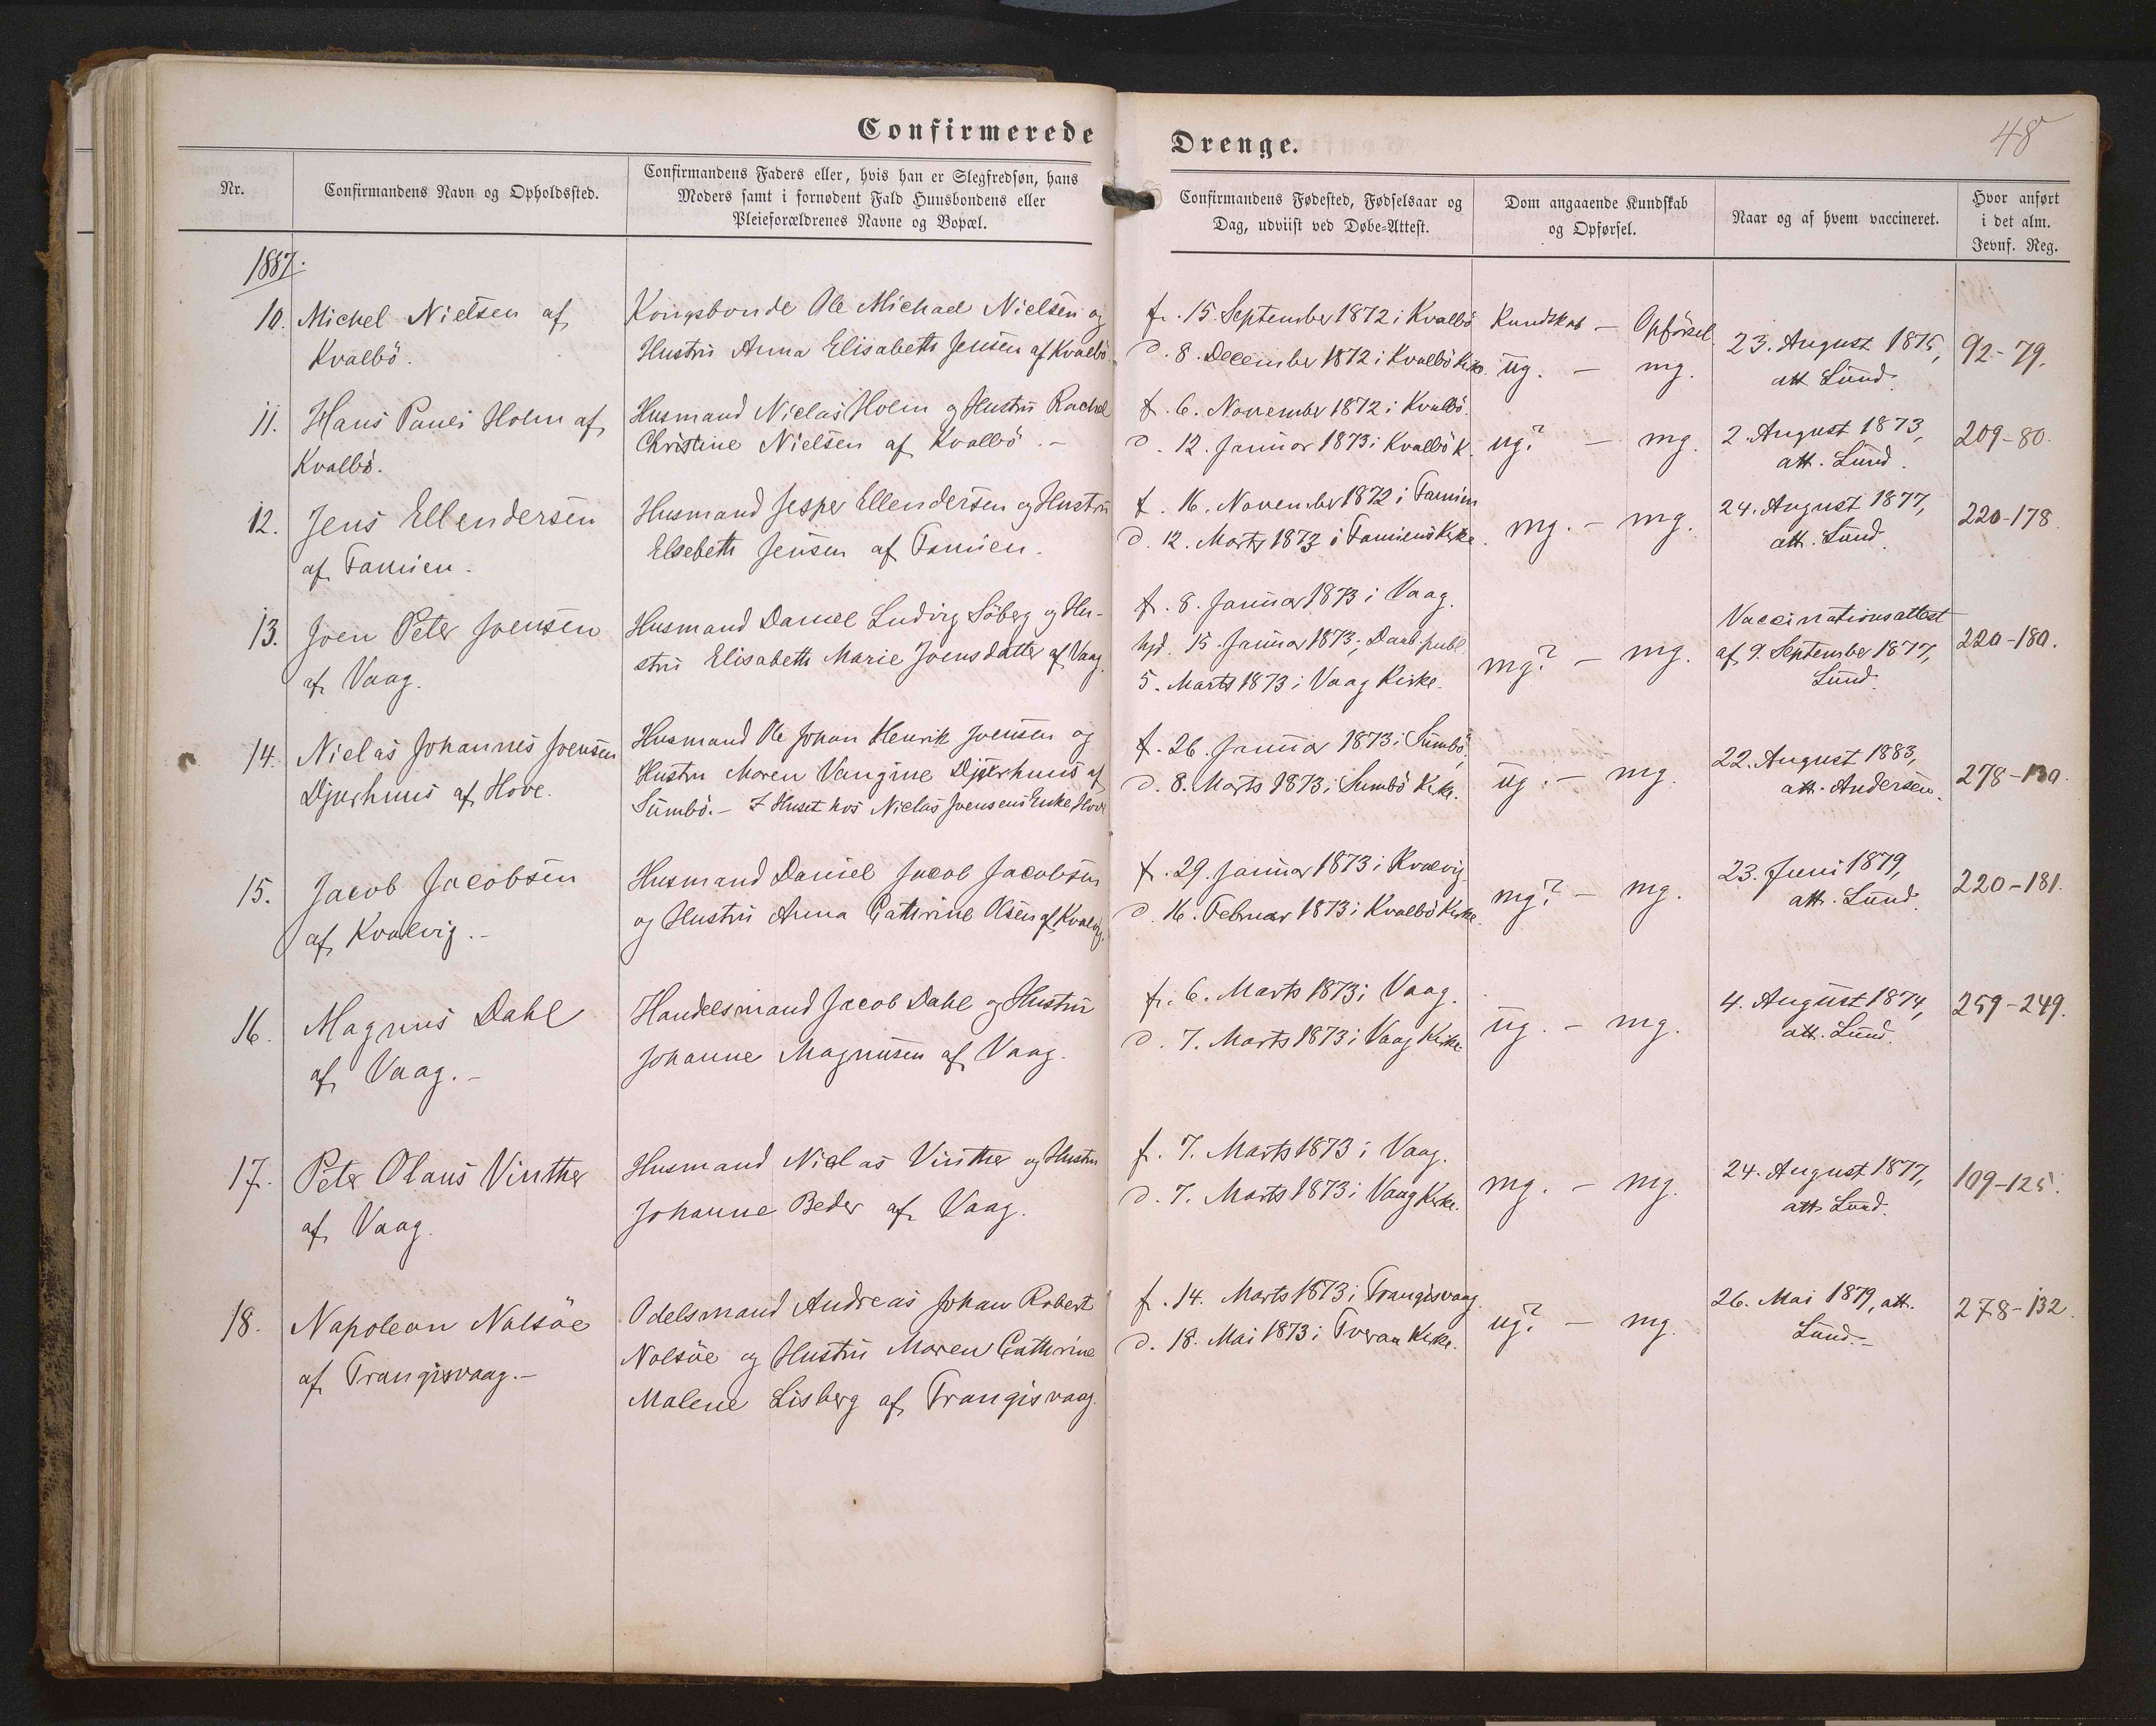 Confirmerede
Drenge.
48
Nr.
Confirmandens Navn og Opholdssted.
Confirmandens Faders eller, hvis han er Slegfredsøn, hans
Moders samt i fornødent Fald Huusbondens eller
Pleieforældrenes Navne og Bopæl.
Confirmandens Fødested, Fødselsaar og
Dag, udviist ved Døbe-Attest.
Dom angaaende Kundskab
og Opførsel.
Naar og af hvem vaccineret.
Hvor anført
i det alm.
Jevnf. Reg.
1887.
10.
Michel Nielsen af
Kvalbö.
Kongsbonde Ole Michael Nielsen og
Hustru Anna Elisabeth Jensen af Kvalbö.
f. 15. September 1872 i Kvalbö
d. 8. December 1872 i Kvalbö Kirke.
Kundskab – Opförsel.
ug. – mg.
23. August 1875,
att Lund.
92-79.
11.
Hans Pauli Holm af
Kvalbö.
Husmand Niclas Holm og Hustru Rachel
Christine Nielsen af Kvalbö. –
f. 6. November 1872 i Kvalbö.
d. 12. Januar 1873 i Kvalbö K.
ug? – mg.
2. August 1873,
att. Lund.
209-80.
12.
Jens Ellendersen
af Famien.
Husmand Jesper Ellendersen og Hustru
Elsebeth Jensen af Famien.
f. 16. November 1872 i Famien
d. 12. Marts 1873 i Famiens Kirke.
mg. – mg.
24. August 1877,
att. Lund.
220-178.
13.
Joen Peter Joensen
af Vaag.
Husmand Daniel Ludvig Söberg og Hu-
stru Elisabeth Marie Joensdatter af Vaag.
f. 8. Januar 1873 i Vaag.
hjd. 15. Januar 1873; Daab. publ.
5. Marts 1873 i Vaag Kirke.
mg? – mg.
Vaccinationsattest
af 9. September 1877,
Lund.
220-180.
14.
Niclas Johannes Joensen
Djurhuus af Hove.
Husmand Ole Johan Henrik Joensen og
Hustru Maren Vangine Djurhuus af
Sumbö. – I Huset hos Niclas Joensens Enke Hove
f. 26. Januar 1873 i Sumbö,
d. 8. Marts 1873 i Sumbö Kirke.
ug. – mg.
22. August 1883,
att. Andersen.
278-130.
15.
Jacob Jacobsen
af Kvalvig. –
Husmand Daniel Jacob Jacobsen
og Hustru Anna Cathrine Olsen af Kvalvig.
f. 29. Januar 1873 i Kvalvig.
d. 16. Februar 1873 i Kvalbö Kirke.
mg? – mg.
23. Juni 1879,
att. Lund.
220-181.
16.
Magnus Dahl
af Vaag. –
Handelsmand Jacob Dahl og Hustru
Johanne Magnusen af Vaag.
f. 6. Marts 1873 i Vaag.
d. 7. Marts 1873 i Vaag Kirke
ug. – mg.
4. August 1874,
att. Lund.
259-249.
17.
Peter Olaus Vinther
af Vaag.
Husmand Niclas Vinther og Hustru
Johanne Beder af Vaag.
f. 7. Marts 1873 i Vaag.
d. 7. Marts 1873 i Vaag Kirke.
mg. – mg.
24. August 1877,
att Lund.
109-125.
18.
Napoleon Nolsöe
af Trangisvaag. –
Odelsmand Andreas Johan Robert
Nolsöe og Hustru Maren Cathrine
Malene Lisberg af Trangisvaag.
f. 14. Marts 1873 i Trangisvaag.
d. 18. Mai 1873 i Tveraa Kirke.
ug? – mg.
26. Mai 1879, att.
Lund. –
278-132.